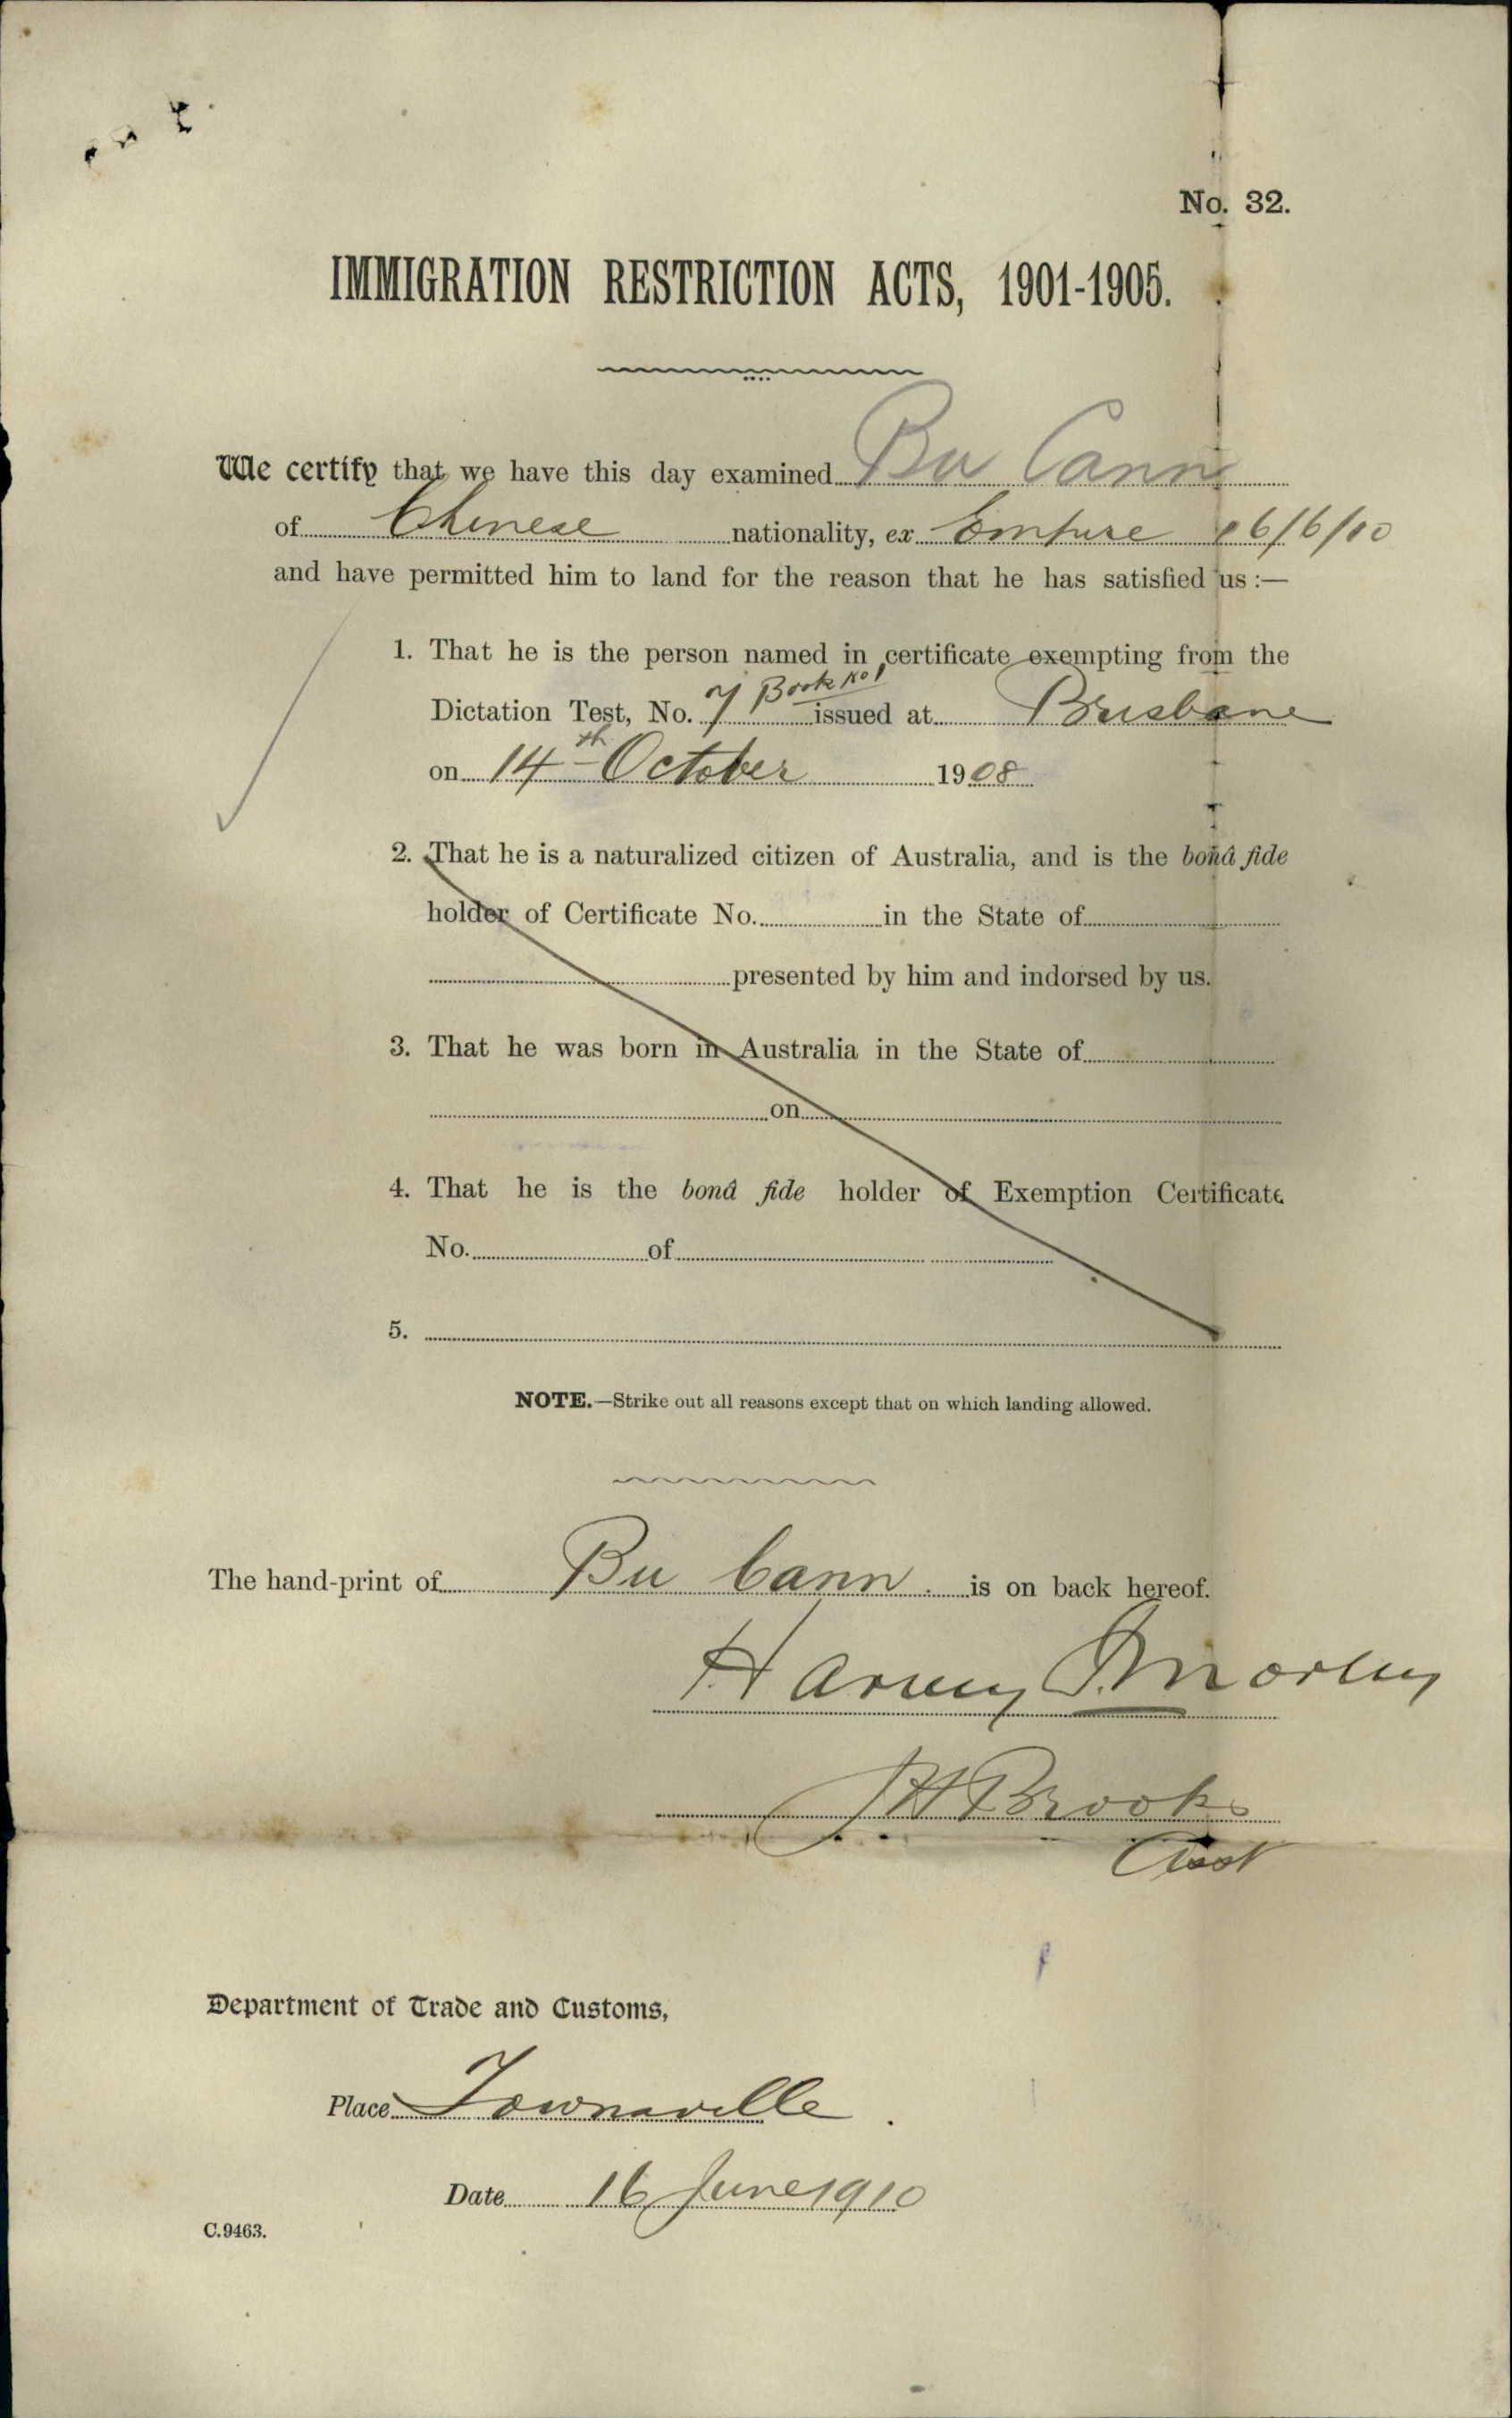 No. 32.
IMMIGRATION RESTRICTION ACTS, 1901-1905.
We certify that we have this day examined Bu Cann
of Chinese nationality, ex Empire 16/6/10
and have permitted him to land for the reason that he has satisfied us :—
1. That he is the person named in certificate exempting from the
Book No 1
Dictation Test, No. 7 issued at Brisbane
on 14th October 1908
2. That he is a naturalized citizen of Australia, and is the bonâ fide
holder of Certificate No. in the State of
presented by him and indorsed by us.
3. That he was born in Australia in the State of
on
4. That he is the bonâ fide holder of Exemption Certificate
No. of
5.
NOTE.—Strike out all reasons except that on which landing allowed.
The hand-print of Bu Cann. is on back hereof.
Harvey Morley
JH Brooks
Asst
Department of Trade and Customs,
Place Townsville.
Date 16 June 1910
C.9463.